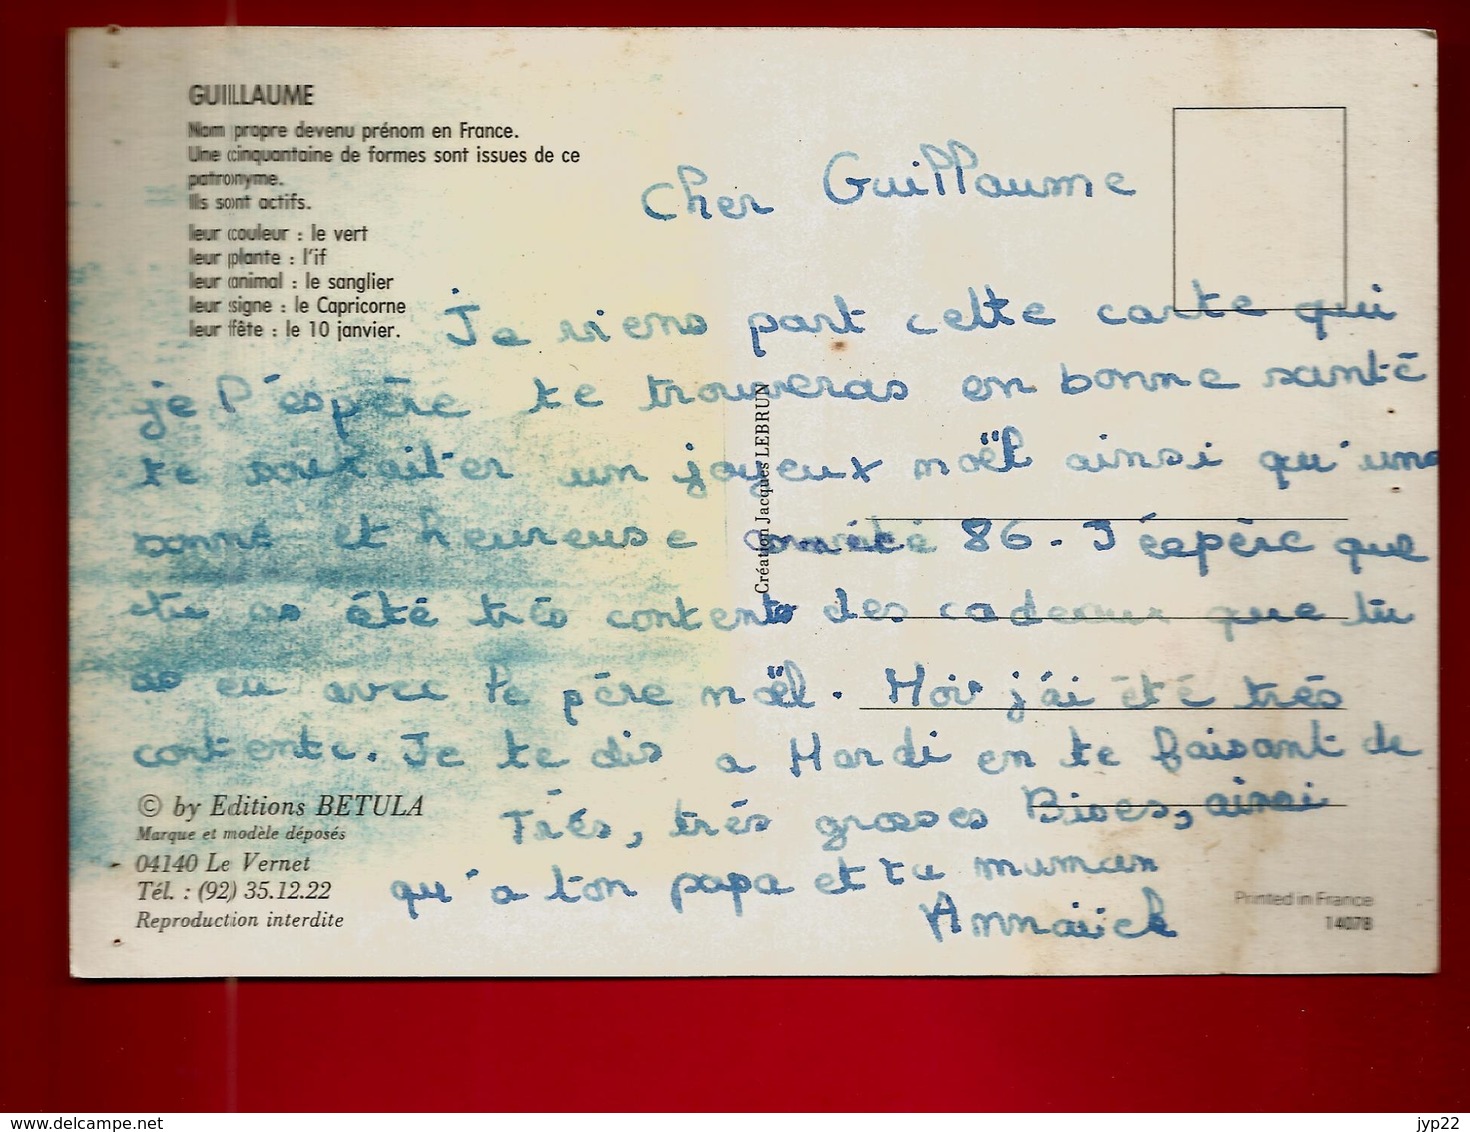 GUILLAUME
Nom propre devenu prénom en France.
Une cinquantaine de formes sont issues de ce
patronyme.
Ils sont actifs.
leur couleur : le vert
leur plante : l'if
leur animal : le sanglier
leur signe : le Capricorne
leur fête : le 10 janvier.
Cher Guillaume
Je viens part cette carte qui
je l'éspère te trouveras en bonne santé
te souhaiter un joyeux noël ainsi qu'une
bonne et heureuse année 86 - J'éspère que
tu as été très content des cadeaux que tu
as eu avec le père noël. Moi j'ai été très
contente. Je te dis a Mardi en te faisant de
Très, très grosses Bises, ainsi
qu'a ton papa et ta maman
Annaïck
Création Jacques LEBRUN
© by Editions BETULA
Marque et modèle déposés
04140 Le Vernet
Tél. : (92) 35.12.22
Reproduction interdite
Printed in France
14078
delcampe.net
jyp22